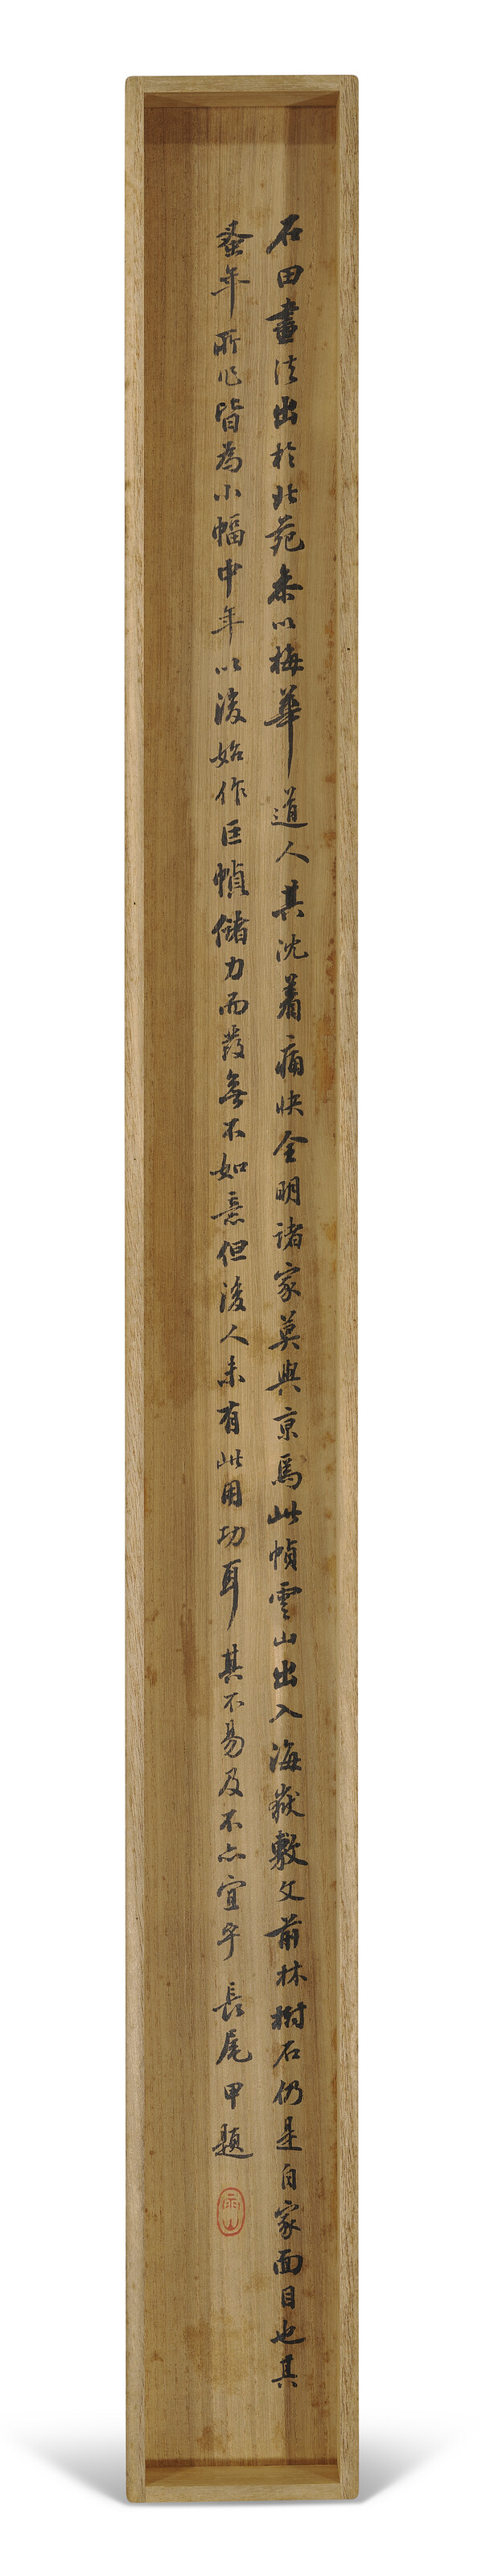 石田畫法出於北苑参以梅華道人其沈著痛快全明諸家莫與京焉此幀雲山出入海嶽敷文前林樹石仍是自家面目也其
蚤年所作皆為小幅中年以後始作巨幀儲力而發無不如意但後人未有此用功耳其不易及不亦宜乎 長尾甲題
雨山